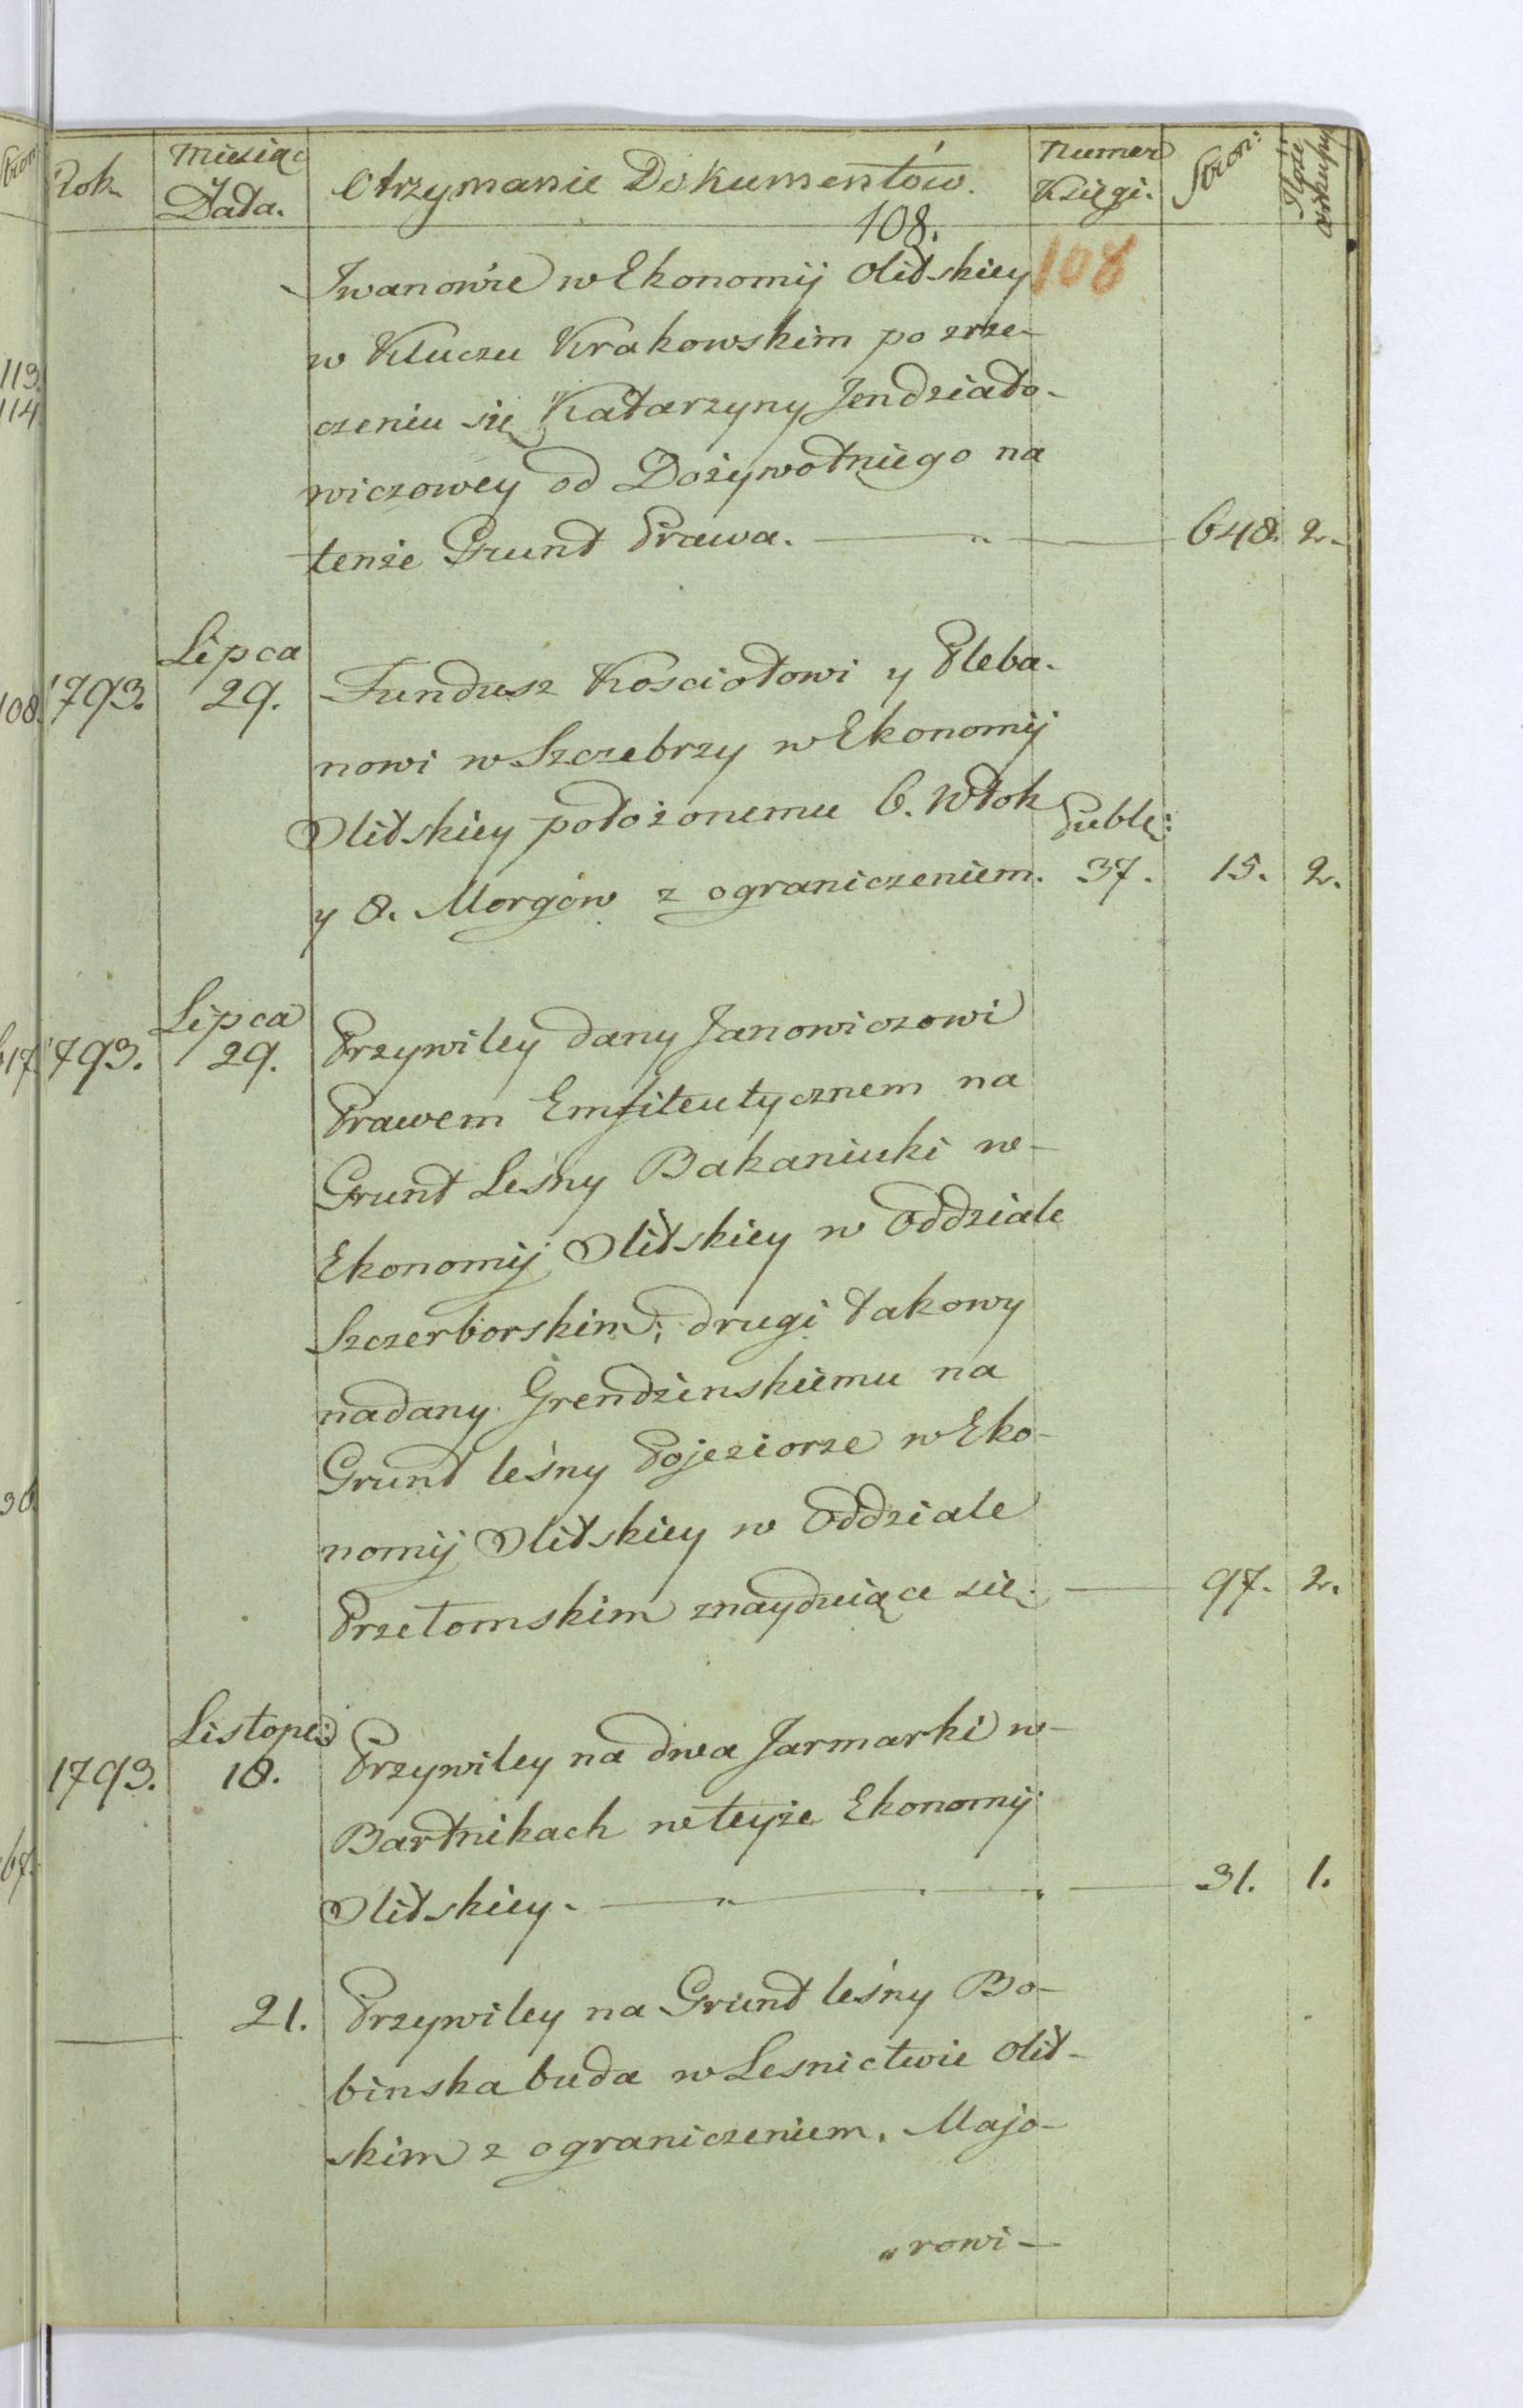 Rok
Miesiąc
Data.
Otrzymanie Dokumentów.
Numer
Księgi.
Stron:
Ilość
arkuszy
108.
108
Iwanowie w Ekonomij Olitskiey
w Kluczu Krakowskim po zrze-
czeniu się Katarzyny Jendziato-
wiczowey od Dożywotniego na
tenże Grunt Prawa. 648. 2.
Lipca
1793. 29. Fundusz Kosciołowi y Pleba-
nowi w Szczebrzy w Ekonomij
Olitskiey położonemu 6. Włok Publ:
y 8. Morgów z ograniczeniem. 37. 15. 2.
Lipca
1793. 29. Przywiley dany Janowiczowi
Prawem Emfiteutycznem na
Grunt Leśny Bakaniuki w-
Ekonomij Olitskiey w Oddziale
Szczerborskim; drugi takowy
nadany Grendzinskiemu na
Grunt leśny Pojeziorze w Eko-
nomij Olitskiey w Oddziale
Przełomskim znayduiące się. 97. 2.
Listopd:
1793. 18. Przywiley na dwa Jarmarki w-
Bartnikach w teyże Ekonomij
Olitskiey. 31. 1.
21. Przywiley na Grunt leśny Bo-
binska buda w Lesnictwie Olit-
skim z ograniczeniem. Majo-
„rowi-